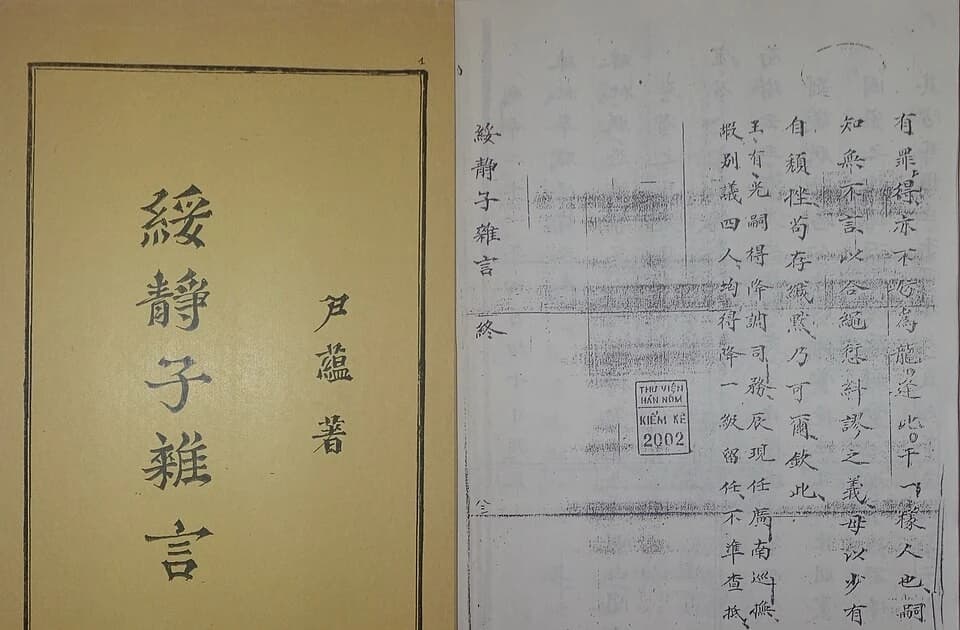 1
綏靜子雜言
尹蘊著
有罪得亦不妨爲龍逢比干一樣人也嗣
知無不言以合繩愆糾謬之義毋以少有
自頹挫苟存緘默乃可爾欽此
王有光嗣得降調司務辰現任廣南巡撫
暇別議四人均得降一級留任不準查抵
THƯ VIỆN
HÁN NÔM
KIỂM KÊ
2002
綏靜子雜言 終
八三